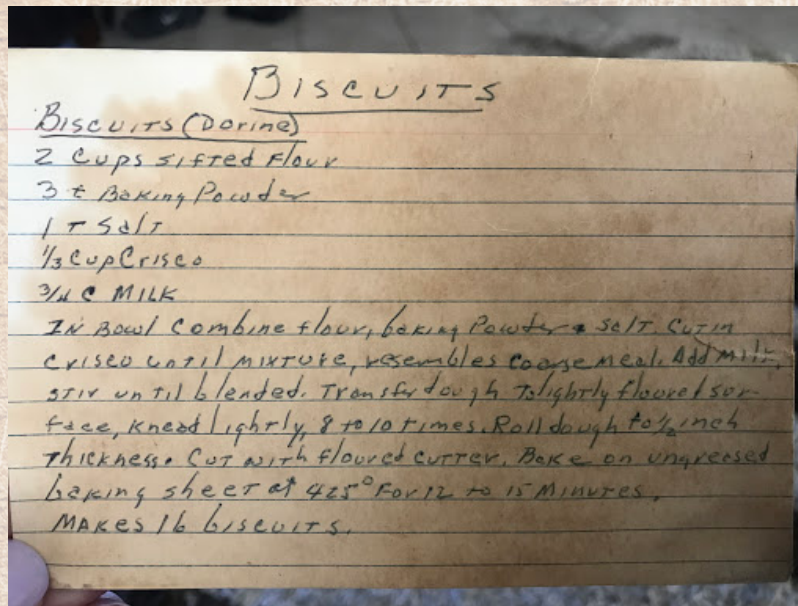 BISCUITS
BISCUITS (Dorine)
2 Cups sifted Flour
3 t Baking Powder
1 T Salt
1/3 Cup Crisco
3/4 C MILK
IN Bowl Combine flour, baking Powder & salt. Cut in
Crisco until mixture, resembles coarse meal. Add milk,
stir until blended. Transfer dough to lightly floured sur-
face, knead lightly, 8 to 10 times. Roll dough to 1/2 inch
thickness. Cut with floured cutter. Bake on ungreased
baking sheet at 425° For 12 to 15 Minutes.
MAKES 16 biscuits.